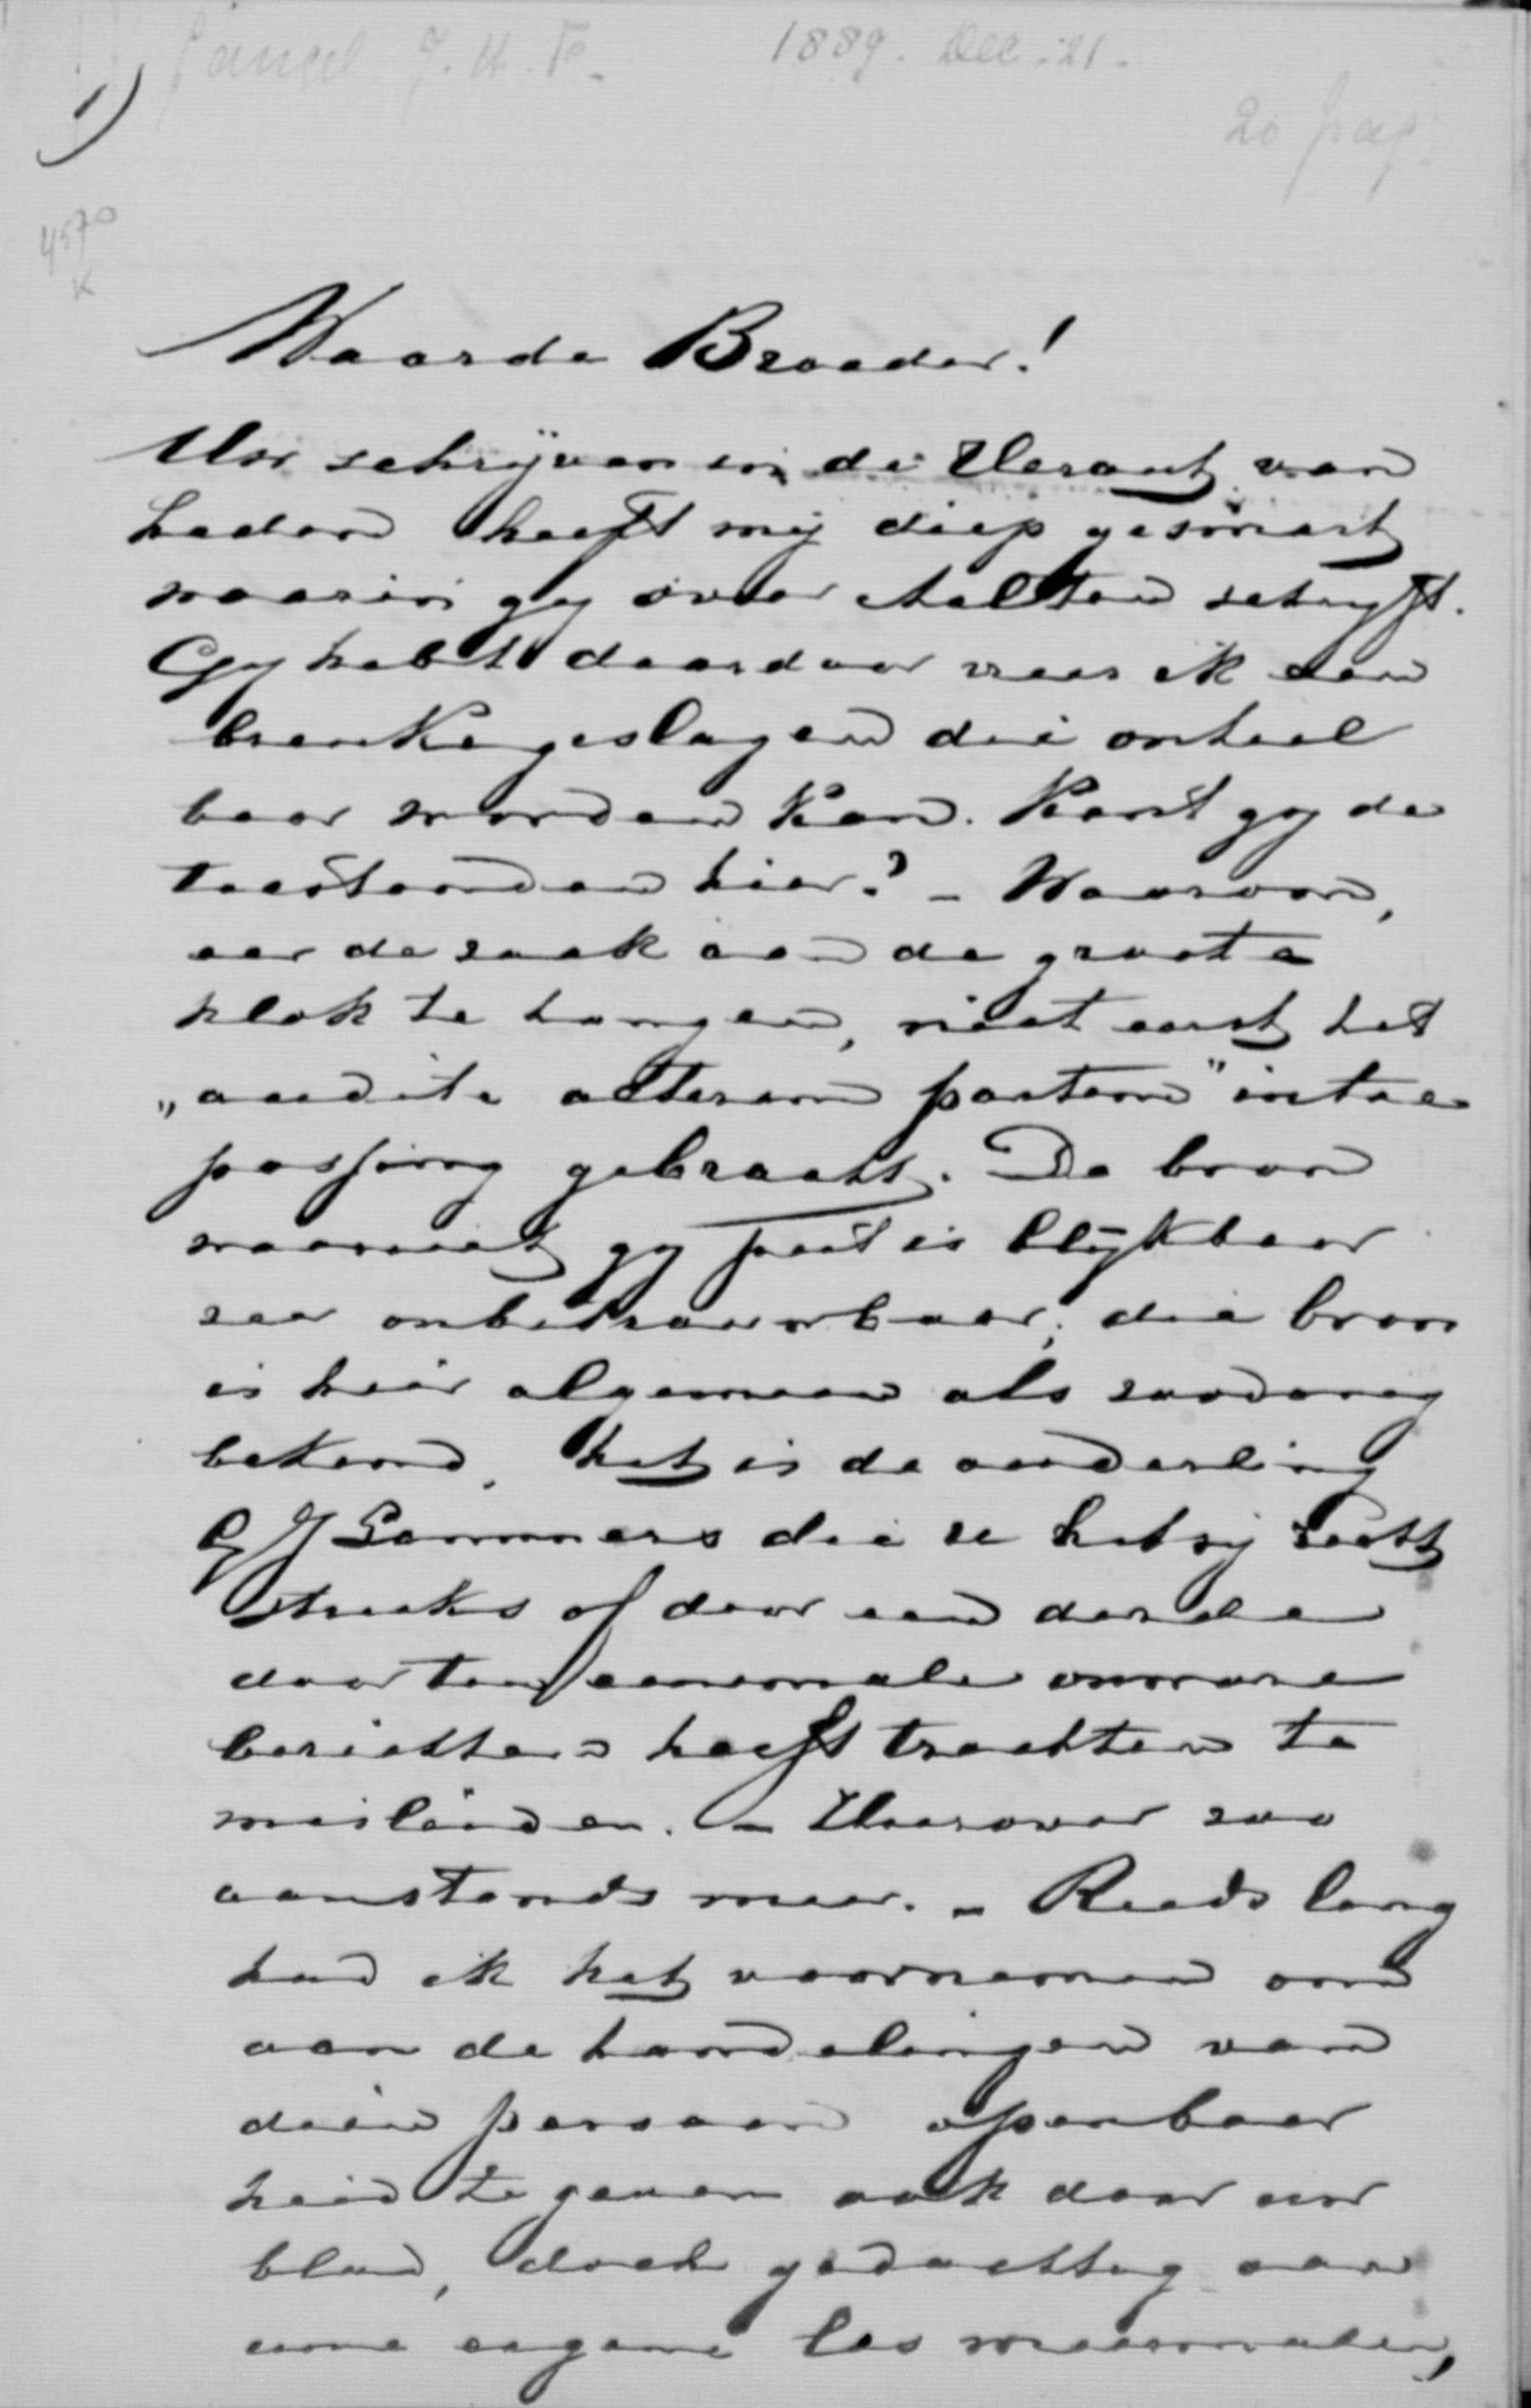 1889. Dec. 21.
1)
20 pag.
4570
K
Waarde Broeder!
Uw schrijven in de Heraut van
heden heeft mij diep gesmart
waarin gij over Aalten schrijft.
Gij hebt daardoor vrees ik een
breuke geslagen die onheel
baar worden kan. Kent gij de
toestanden hier? – Waarom,
eer de zaak aan de groote
klok te hangen, niet eerst het
„audite alteram partem" in toe
passing gebracht. De bron
waaruit gij put is blijkbaar
zeer onbetrouwbaar; die bron
is hier algemeen als zoodanig
bekend, het is de ouderling
G J Lammers die U hetzij recht
streeks of door een derde
door ten eenenmale onware
berichten heeft trachten te
misleiden. – Hierover zoo
aanstonds meer. – Reeds lang
had ik het voornemen om
aan de handelingen van
dien persoon openbaar
heid te geven ook door uw
blad, doch gedachtig aan
uwe eigene les meermalen,